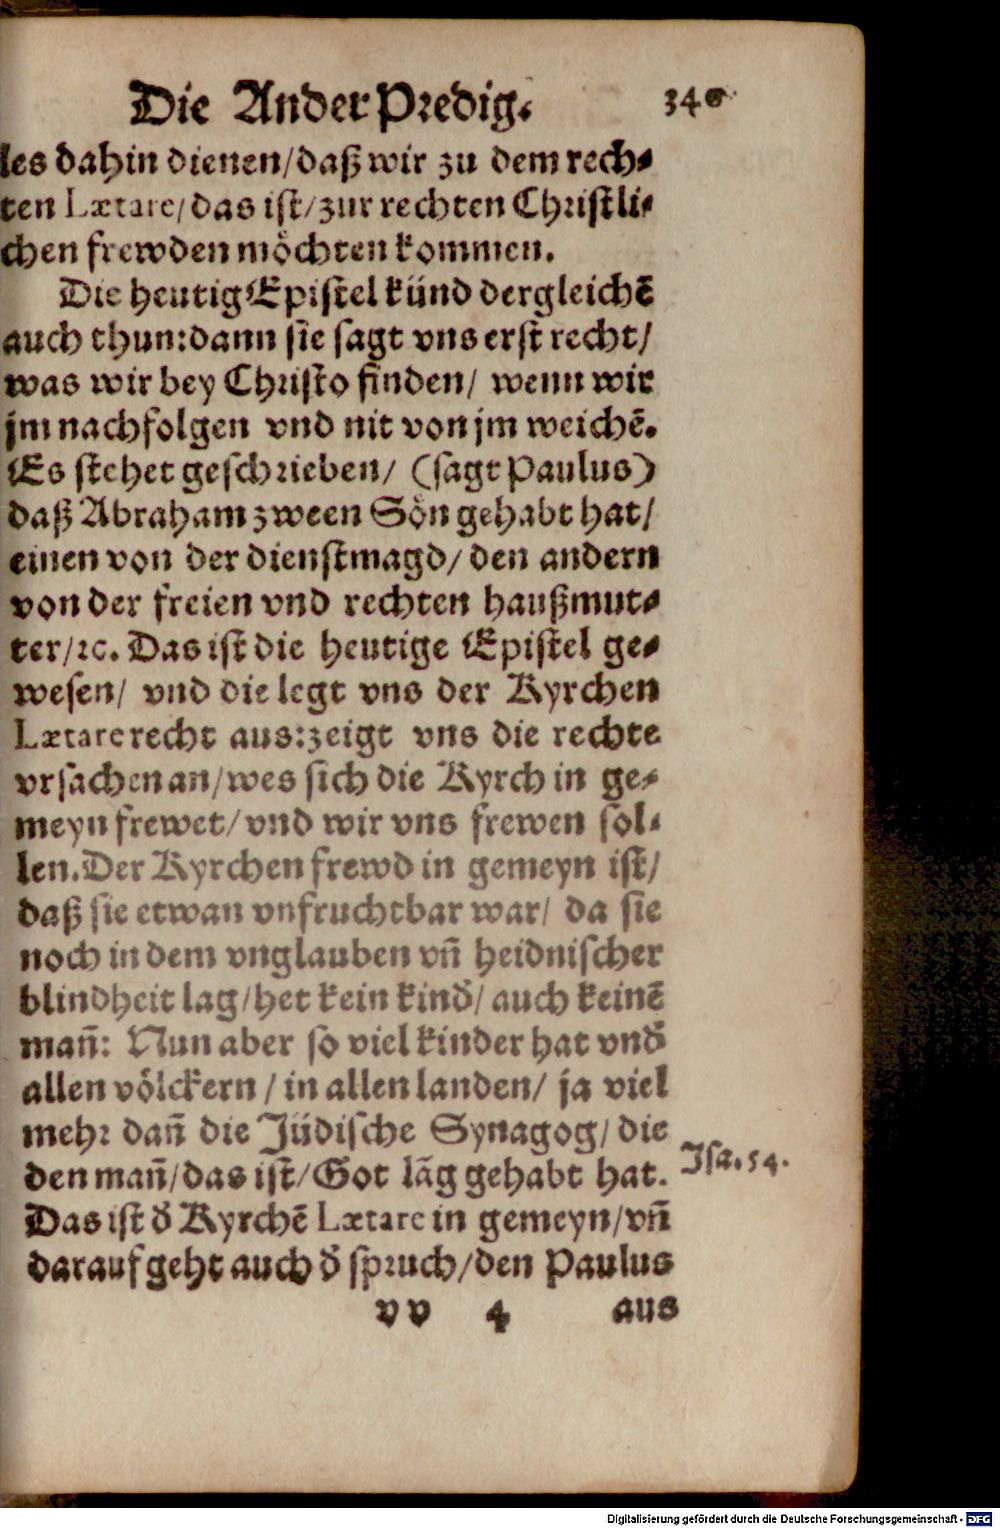 Die Ander Predig. 340
les dahin dienen/daß wir zu dem rech⸗
ten Lætare/das ist/zur rechten Christli⸗
chen frewden möchten kommen.
Die heutig Epistel künd dergleichẽ
auch thun:dann sie sagt vns erst recht/
was wir bey Christo finden/ wenn wir
jm nachfolgen vnd nit von jm weichẽ.
Es stehet geschrieben/ (sagt Paulus)
daß Abraham zween Sön gehabt hat/
einen von der dienstmagd/ den andern
von der freien vnd rechten haußmut⸗
ter/ꝛc. Das ist die heutige Epistel ge⸗
wesen/ vnd die legt vns der Kyrchen
Lætare recht aus:zeigt vns die rechte
vrsachen an/wes sich die Kyrch in ge⸗
meyn frewet/vnd wir vns frewen sol⸗
len.Der Kyrchen frewd in gemeyn ist/
daß sie etwan vnfruchtbar war/ da sie
noch in dem vnglauben vñ heidnischer
blindheit lag/het kein kind/ auch keinẽ
mañ: Nun aber so viel kinder hat vnd̕
allen völckern / in allen landen/ ja viel
mehr dañ die Jüdische Synagog/ die
den mañ/das ist/Got lãg gehabt hat.
Jsa.54.
Das ist d̕ Kyrchẽ Lætare in gemeyn/vñ
darauf geht auch d̕ spruch/den Paulus
vv 4 aus
Digitalisierung gefördert durch die Deutsche Forschungsgemeinschaft - DFG